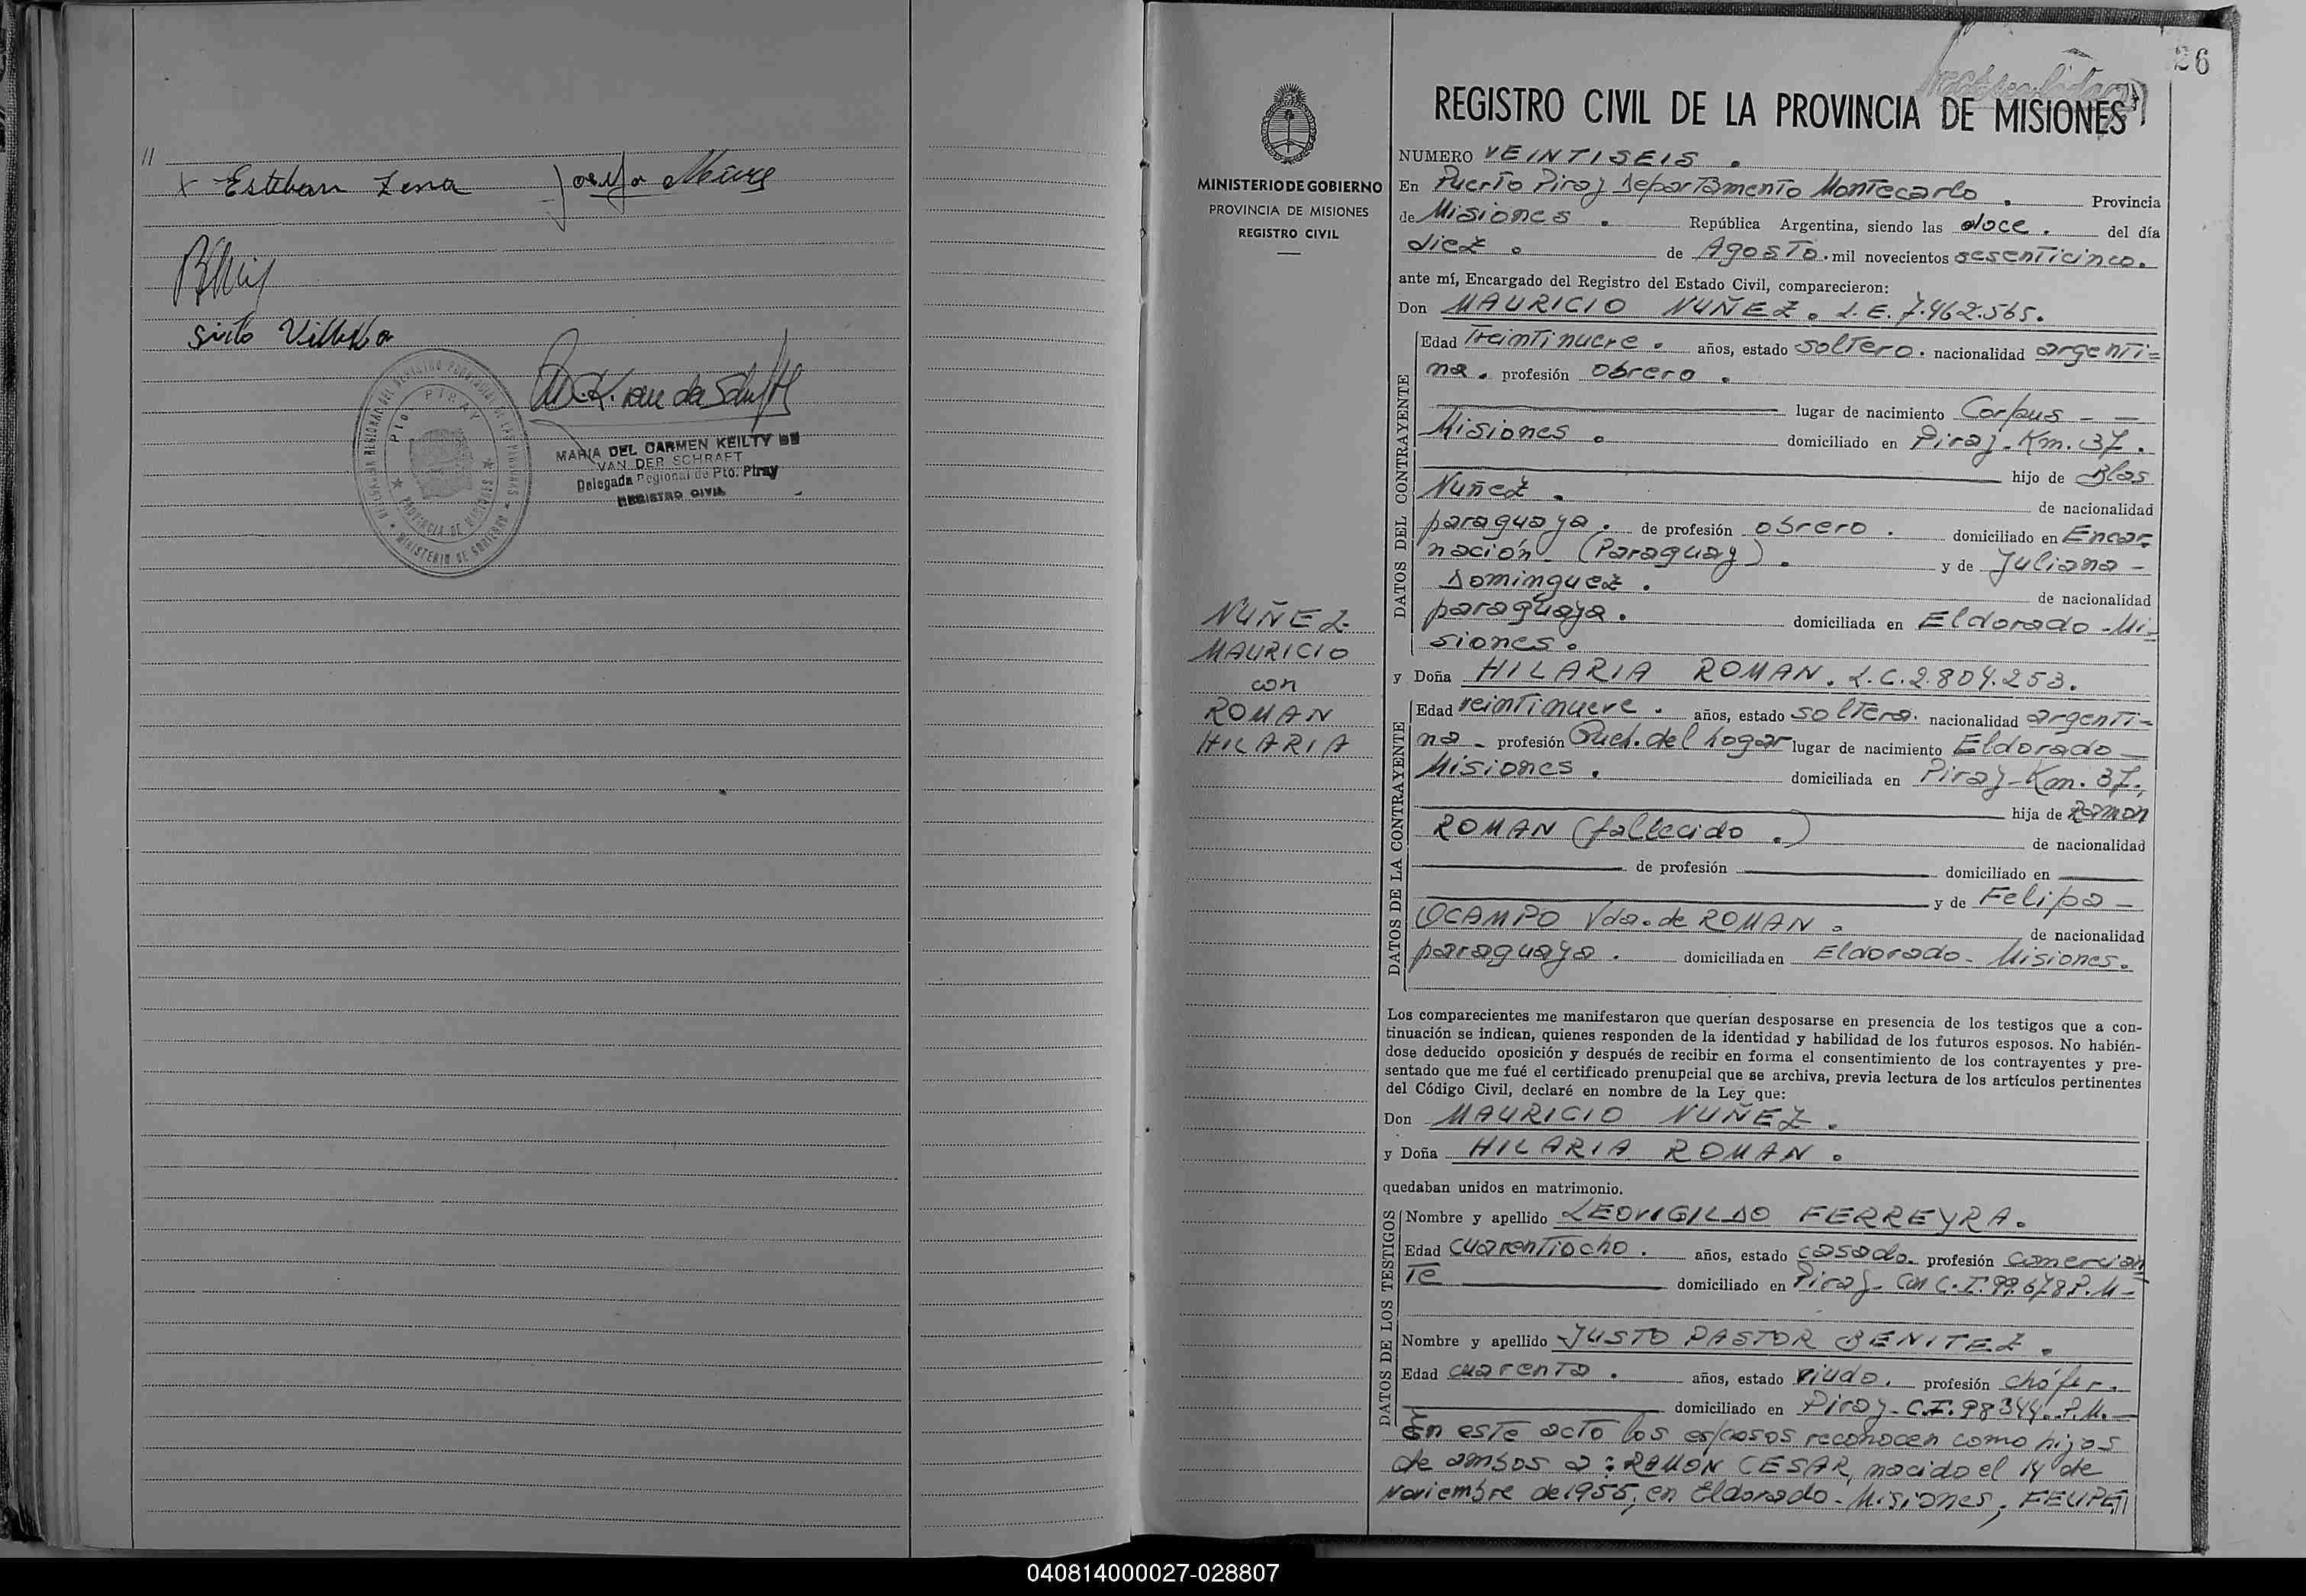 11
x Esteban Zena
Sixto Villalba
Pto PIRAY
MINISTERIO DE GOBIERNO
MARIA DEL CARMEN KEILTY DE
VAN DER SCHRAFT
Delegada Regional de Pto. Piray
REGISTRO CIVIL
26
MINISTERIO DE GOBIERNO
PROVINCIA DE MISIONES
REGISTRO CIVIL
NUÑEZ
MAURICIO
con
ROMAN
HILARIA
REGISTRO CIVIL DE LA PROVINCIA DE MISIONES
NUMERO VEINTISEIS .
En Puerto Piray Departamento Montecarlo . Provincia
de Misiones . República Argentina, siendo las doce . del día
diez . de Agosto . mil novecientos sesenticinco.
ante mí, Encargado del Registro del Estado Civil, comparecieron:
Don MAURICIO NUÑEZ . L.E. 7.462.565.
DATOS DEL CONTRAYENTE
Edad Treintinueve . años, estado soltero . nacionalidad argenti=
na . profesión obrero .
lugar de nacimiento Corpus - -
Misiones . domiciliado en Piray - Km. 37 .
hijo de Blas
Nuñez . de nacionalidad
paraguaya . de profesión obrero . domiciliado en Encar=
nación (Paraguay) . y de Juliana -
Dominguez . de nacionalidad
paraguaya . domiciliada en Eldorado - Mi=
siones .
y Doña HILARIA ROMAN . L.C. 2.804.253.
DATOS DE LA CONTRAYENTE
Edad veintinueve . años, estado soltera . nacionalidad argenti=
na - profesión Queh. del hogar lugar de nacimiento Eldorado -
Misiones . domiciliada en Piray - Km. 37.
hija de Ramon
ROMAN (fallecido .) de nacionalidad
de profesión domiciliado en
y de Felipa -
OCAMPO Vda. de ROMAN . de nacionalidad
paraguaya . domiciliada en Eldorado - Misiones.
Los comparecientes me manifestaron que querían desposarse en presencia de los testigos que a con-
tinuación se indican, quienes responden de la identidad y habilidad de los futuros esposos. No habién-
dose deducido oposición y después de recibir en forma el consentimiento de los contrayentes y pre-
sentado que me fué el certificado prenupcial que se archiva, previa lectura de los artículos pertinentes
del Código Civil, declaré en nombre de la Ley que:
Don MAURICIO NUÑEZ .
y Doña HILARIA ROMAN .
quedaban unidos en matrimonio.
DATOS DE LOS TESTIGOS
Nombre y apellido LEOVIGILDO FERREYRA.
Edad cuarentiocho . años, estado casado. profesión comercian
te domiciliado en Piray - Con C.I. 99.678 P.M -
Nombre y apellido JUSTO PASTOR BENITEZ .
Edad cuarenta . años, estado viudo . profesión chófer .
domiciliado en Piray - C.I. 98344. P.M. -
En este acto los esposos reconocen como hijos
de ambos a : RAMON CESAR, nacido el 14 de
Noviembre de 1955, en Eldorado - Misiones ; FELIPE
040814000027-028807